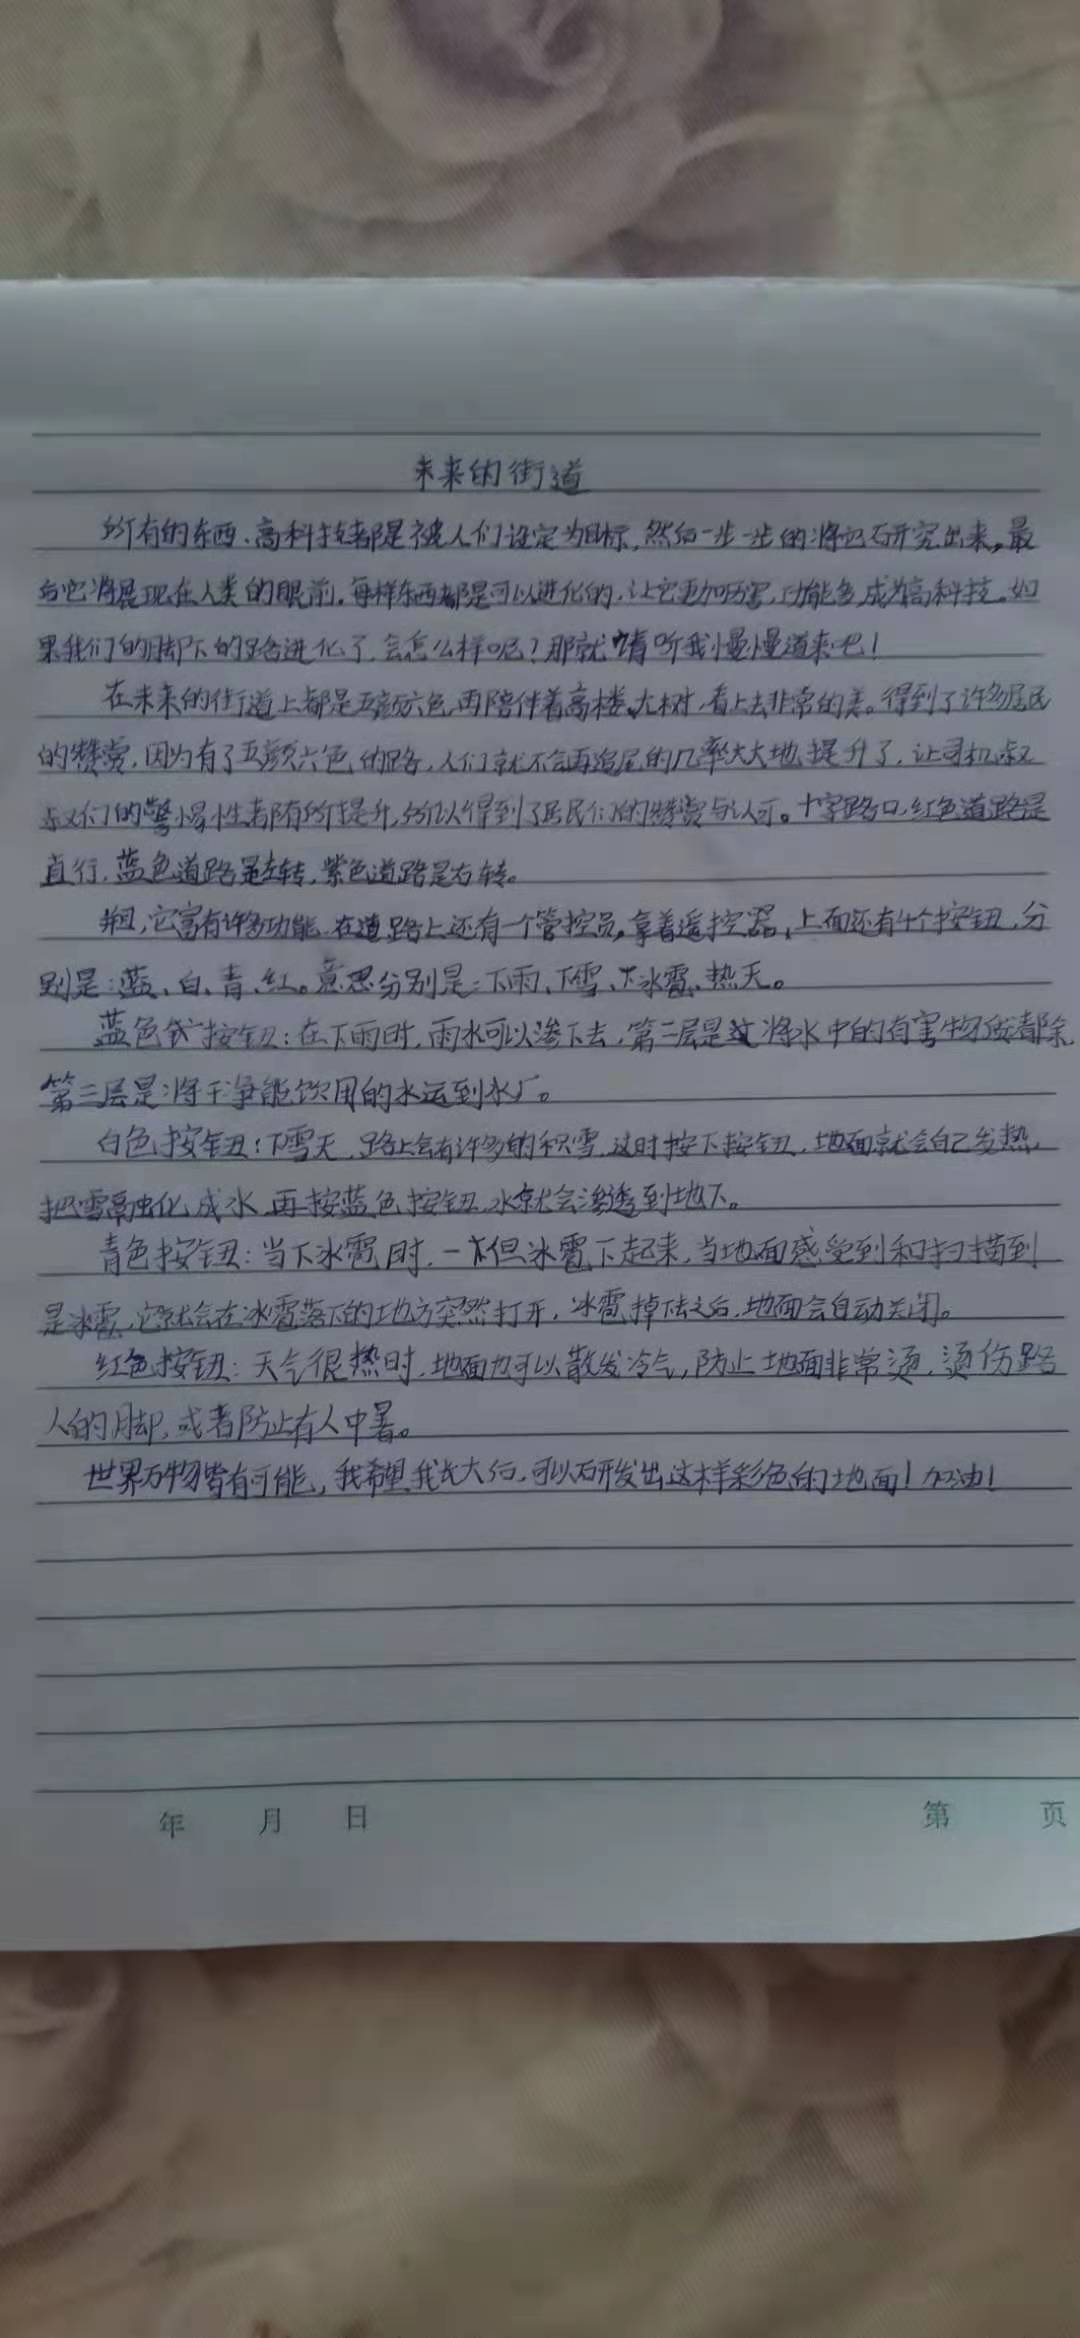 未来的街道
所有的东西、高科技都是被人们设定为目标,然后一步一步的将它研究出来,最
后它将展现在人类的眼前。每样东西都是可以进化的,让它更加厉害,功能多,成为高科技。如
果我们的脚下的路进化了,会怎么样呢?那就请听我慢慢道来吧!
在未来的街道上都是五颜六色,再陪伴着高楼、大树,看上去非常的美。得到了许多居民
的赞赏,因为有了五颜六色的路,人们就不会再追尾的几率大大地提升了,让司机叔
叔们的警惕性都有所提升,所以得到了居民们的赞赏与认可。十字路口,红色道路是
直行,蓝色道路是左转,紫色道路是右转。
并且,它富有许多功能,在道路上还有一个管控员,拿着遥控器,上面还有4个按钮,分
别是:蓝、白、青、红。意思分别是:下雨、下雪、下冰雹、热天。
蓝色按钮:在下雨时,雨水可以渗下去,第二层是将水中的有害物质都除,
第三层是将干净能饮用的水运到水厂。
白色按钮:下雪天,路上会有许多的积雪,这时按下按钮,地面就会自己发热,
把雪融化成水,再按蓝色按钮,水就会渗透到地下。
青色按钮:当下冰雹时,一但冰雹下起来,当地面感受到和扫描到
是冰雹,它就会在冰雹落下的地方突然打开,冰雹掉下去之后,地面会自动关闭。
红色按钮:天气很热时,地面也可以散发冷气,防止地面非常烫,烫伤路
人的脚,或者防止有人中暑。
世界万物皆有可能,我希望我长大后,可以研发出这样彩色的地面!加油!
年 月 日 第 页